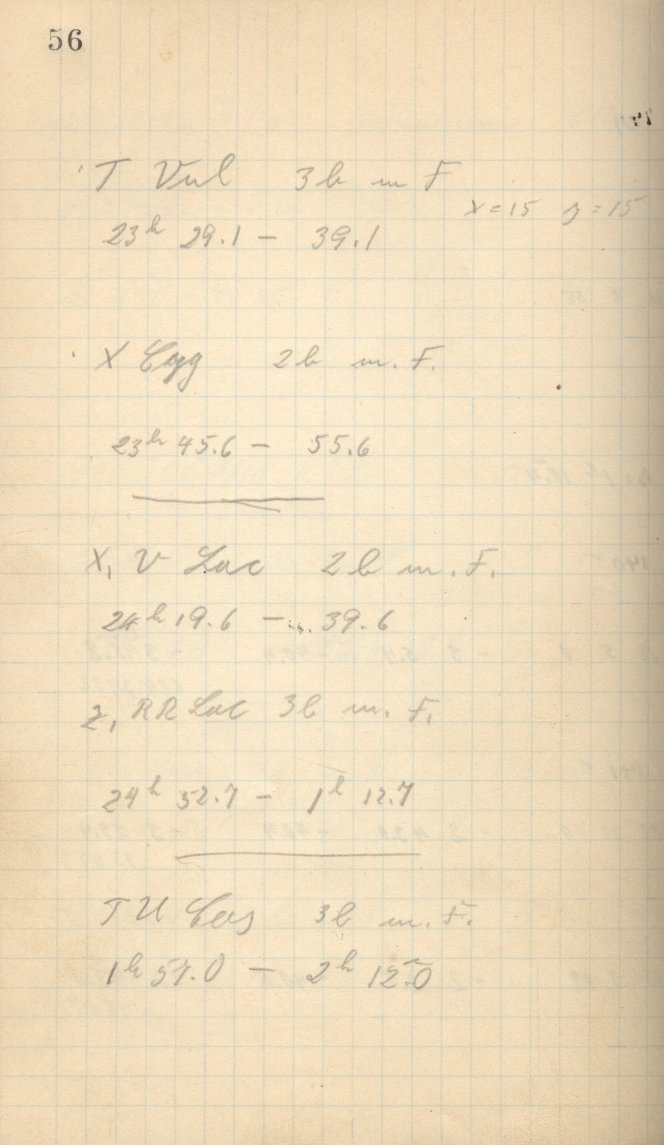 56
T Vul 3b m F
x=15 y=15
23h 29.1 — 39.1
X Cyg 2b m. F.
23h 45.6 — 55.6
X, V Lac 2b m. F.
24h 19.6 — 39.6
Z, RR Lac 3b m. F.
24h 52.7 — 1h 12.7
TU Cas 3b m. F.
1h 57.0 — 2h 12.0